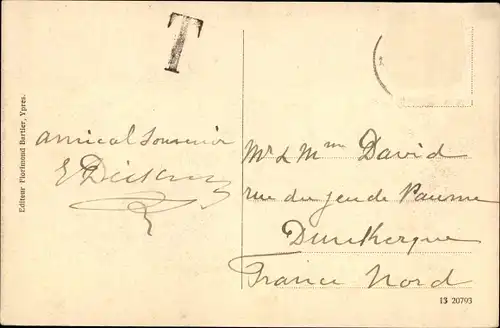 T
Editeur Florimond Bartier, Ypres.
amical souvenir
Mr & Mme David
rue du jeu de Paume
Dunkerque
France Nord
13 20793